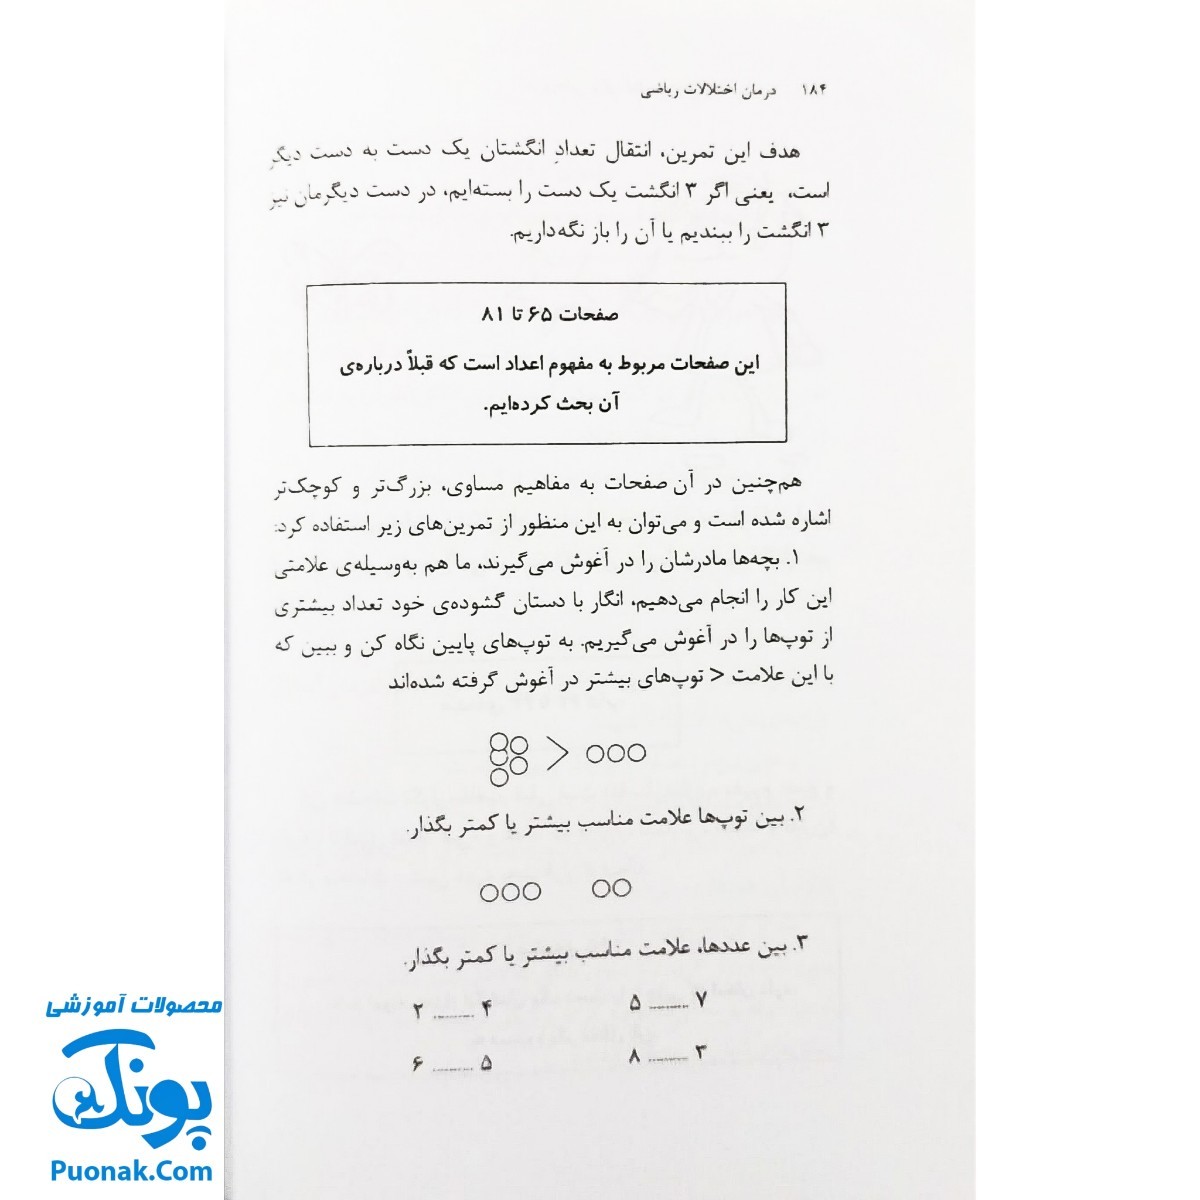 ۱۸۴ درمان اختلالات ریاضی
هدف این تمرین، انتقال تعدادِ انگشتان یک دست به دست دیگر
است، یعنی اگر ۳ انگشت یک دست را بسته‌ایم، در دست دیگرمان نیز
۳ انگشت را ببندیم یا آن را باز نگه‌داریم.
صفحات ۶۵ تا ۸۱
این صفحات مربوط به مفهوم اعداد است که قبلاً درباره‌ی
آن بحث کرده‌ایم.
هم‌چنین در آن صفحات به مفاهیم مساوی، بزرگ‌تر و کوچک‌تر
اشاره شده است و می‌توان به این منظور از تمرین‌های زیر استفاده کرد:
۱. بچه‌ها مادرشان را در آغوش می‌گیرند، ما هم به‌وسیله‌ی علامتی
این کار را انجام می‌دهیم، انگار با دستان گشوده‌ی خود تعداد بیشتری
از توپ‌ها را در آغوش می‌گیریم. به توپ‌های پایین نگاه کن و ببین که
با این علامت < توپ‌های بیشتر در آغوش گرفته شده‌اند
>
۲. بین توپ‌ها علامت مناسب بیشتر یا کمتر بگذار.
۳. بین عددها، علامت مناسب بیشتر یا کمتر بگذار.
۷ ........ ۵ ۴ ........ ۲
۳ ........ ۸ ۵ ........ ۶
محصولات آموزشی
پونک
Puonak.Com